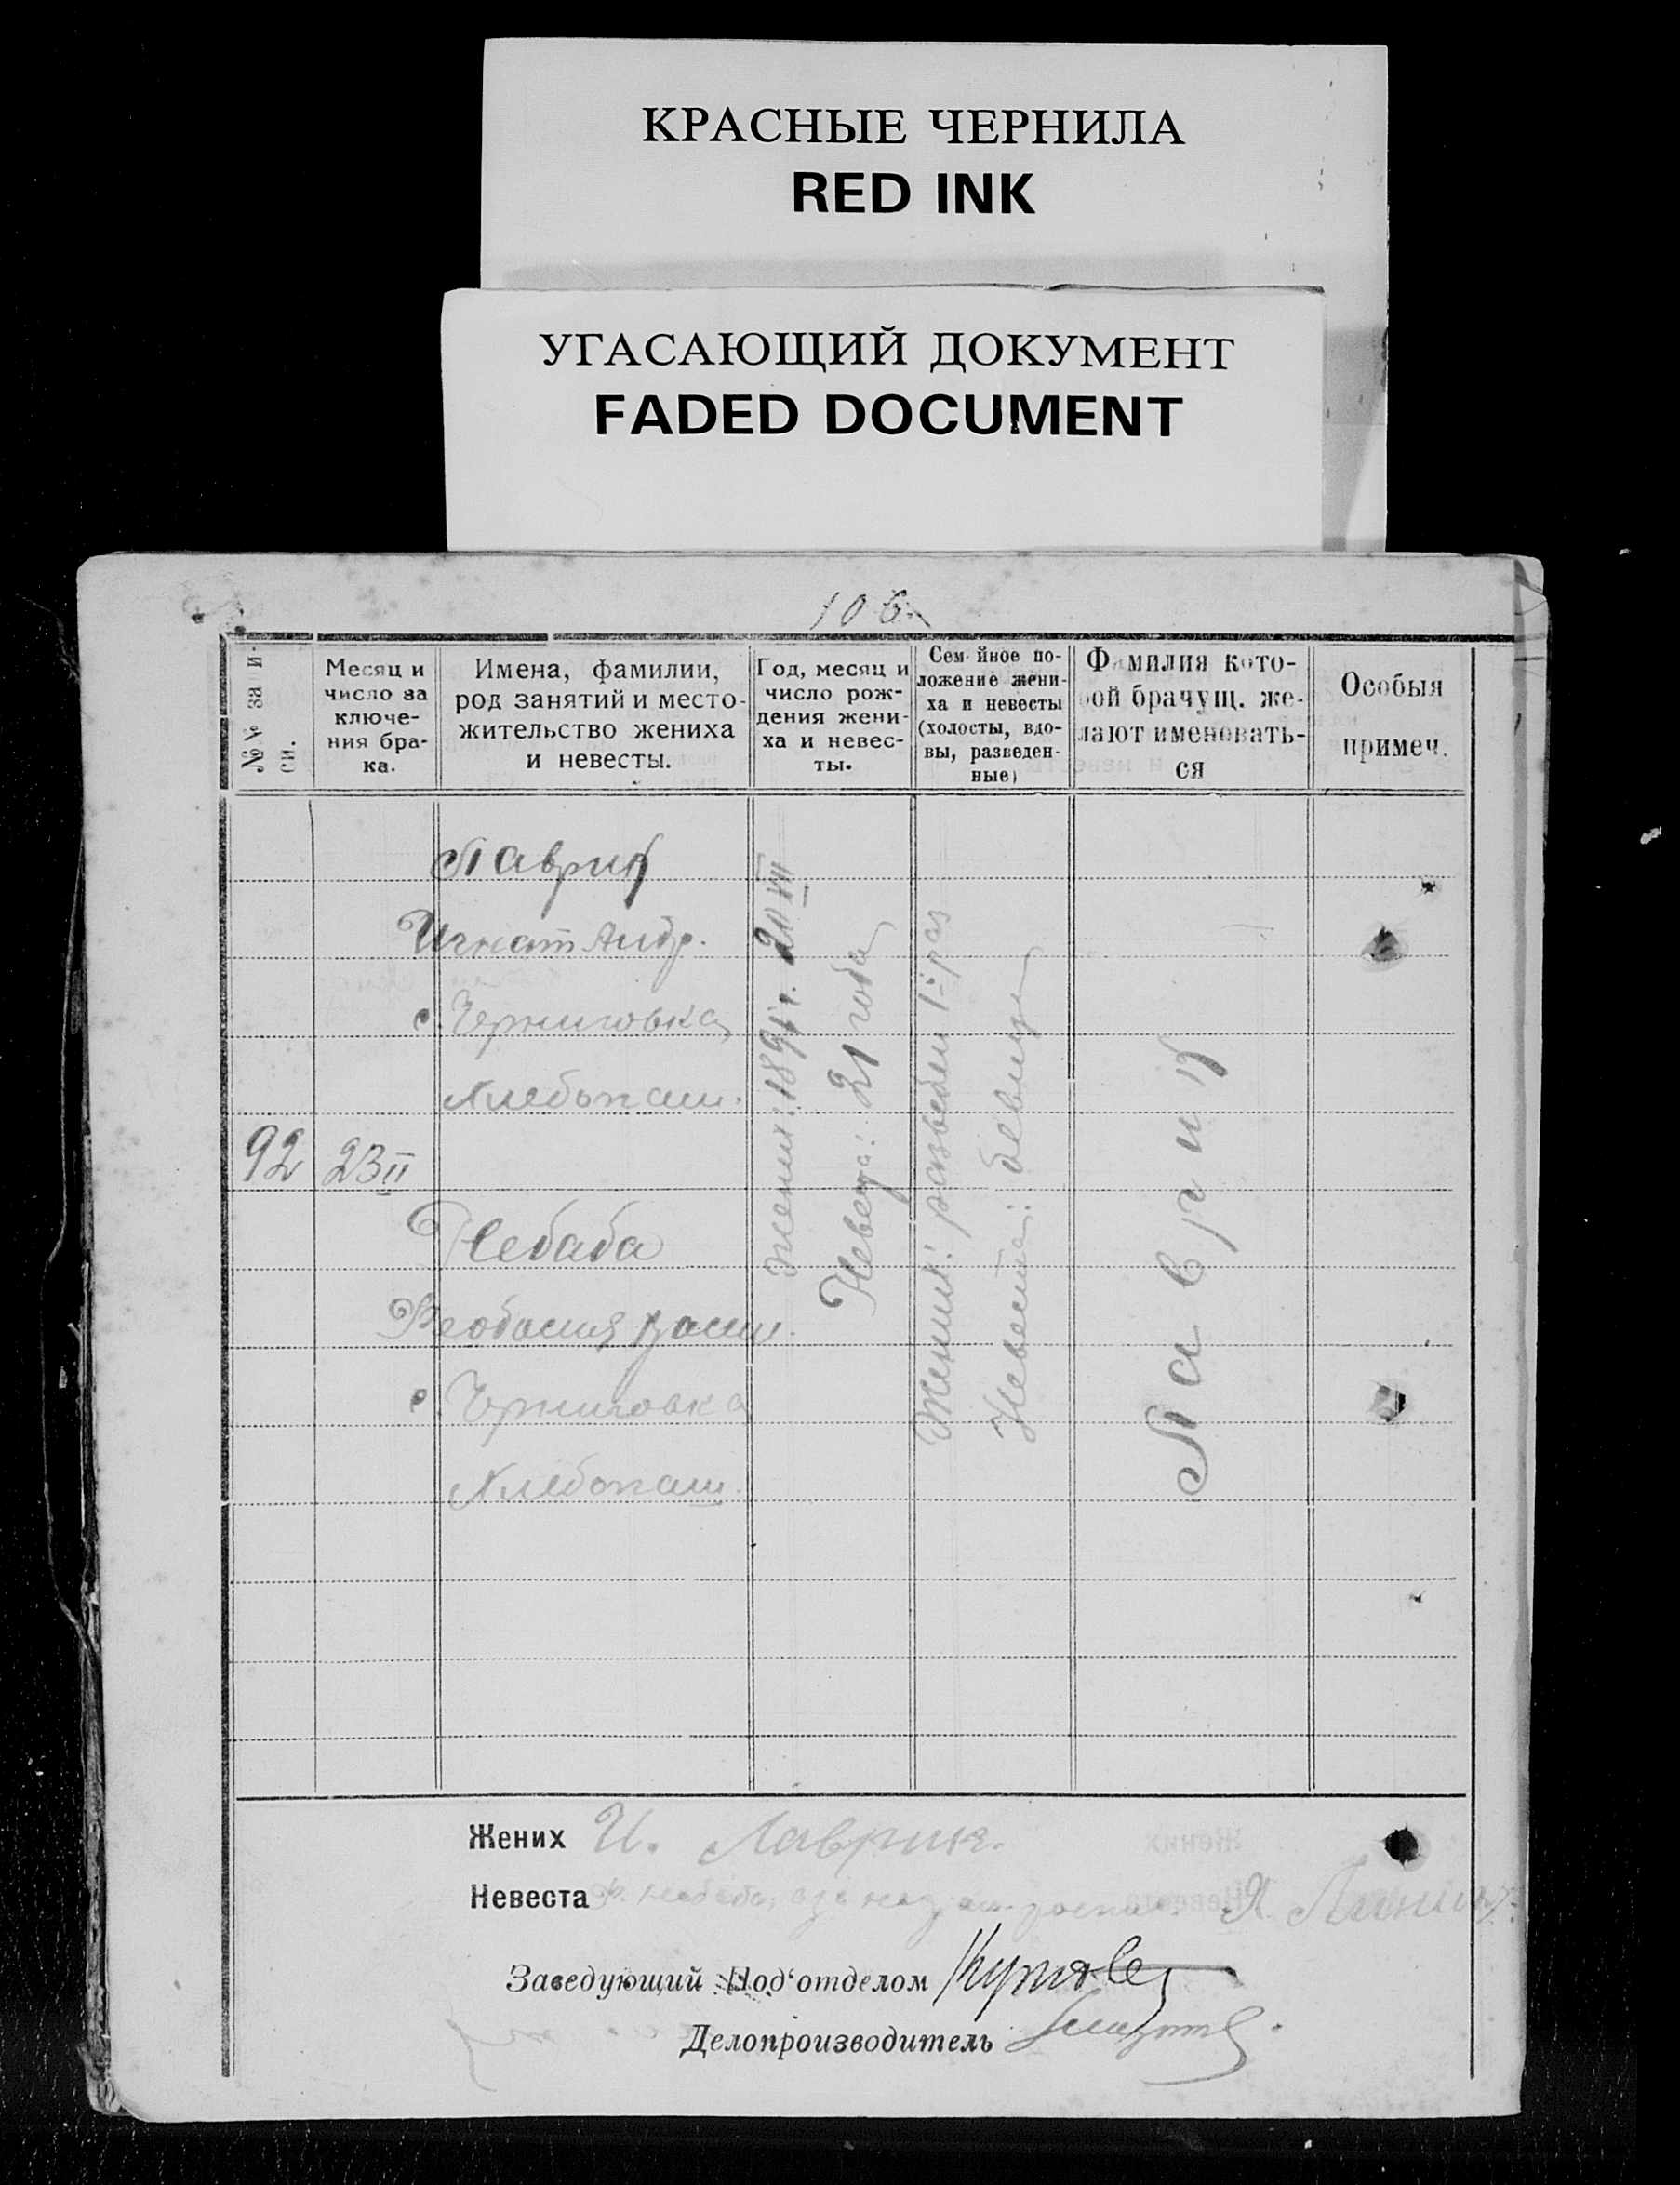 КРАСНЫЕ ЧЕРНИЛА
RED INK
УГАСАЮЩИЙ ДОКУМЕНТ
FADED DOCUMENT
106
№№ запи-
си.
Месяц и
число за
ключе-
ния бра-
ка.
Имена, фамилии,
род занятий и место-
жительство жениха
и невесты.
Год, месяц и
число рож-
дения жени-
ха и невес-
ты.
Семейное по-
ложение жени-
ха и невесты
(холосты, вдо-
вы, разведен-
ные)
Фамилия кото-
рой брачущ. же-
лают именовать-
ся
Особыя
примеч.
Лаврик
Игнат Андр.
с. Черниговка
Хлебопаш.
92
23 II
Небаба
Феодосия
с. Черниговка
Хлебопаш.
Жених: 1891 г. 20 VII
Невеста: 21 года
Жених: разведен 1-й раз
Невеста: девица
Лаврик
Жених И. Лаврик.
Невеста
Заведующий Под'отделом
Делопроизводитель